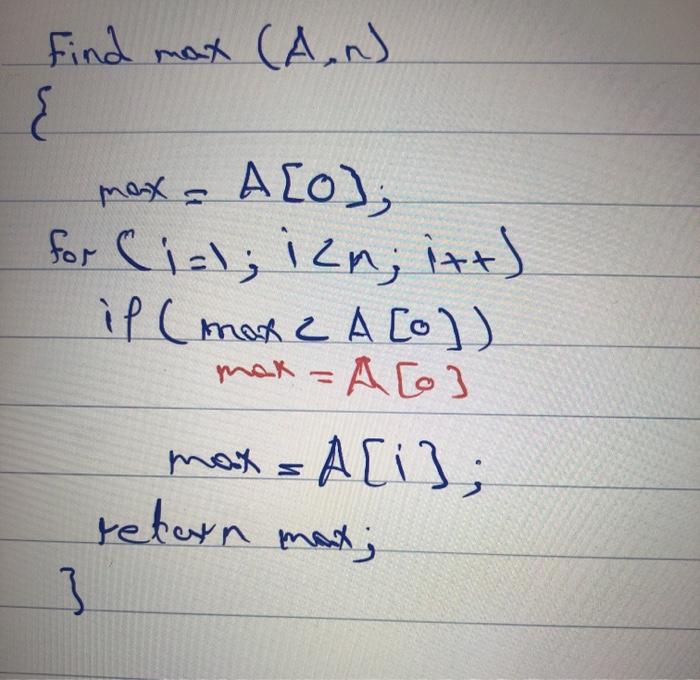 Find max (A,n)
{
max = A[0];
for (i=1; i<n; i++)
if (max < A[0])
max = A[0]
max = A[i];
return max;
}